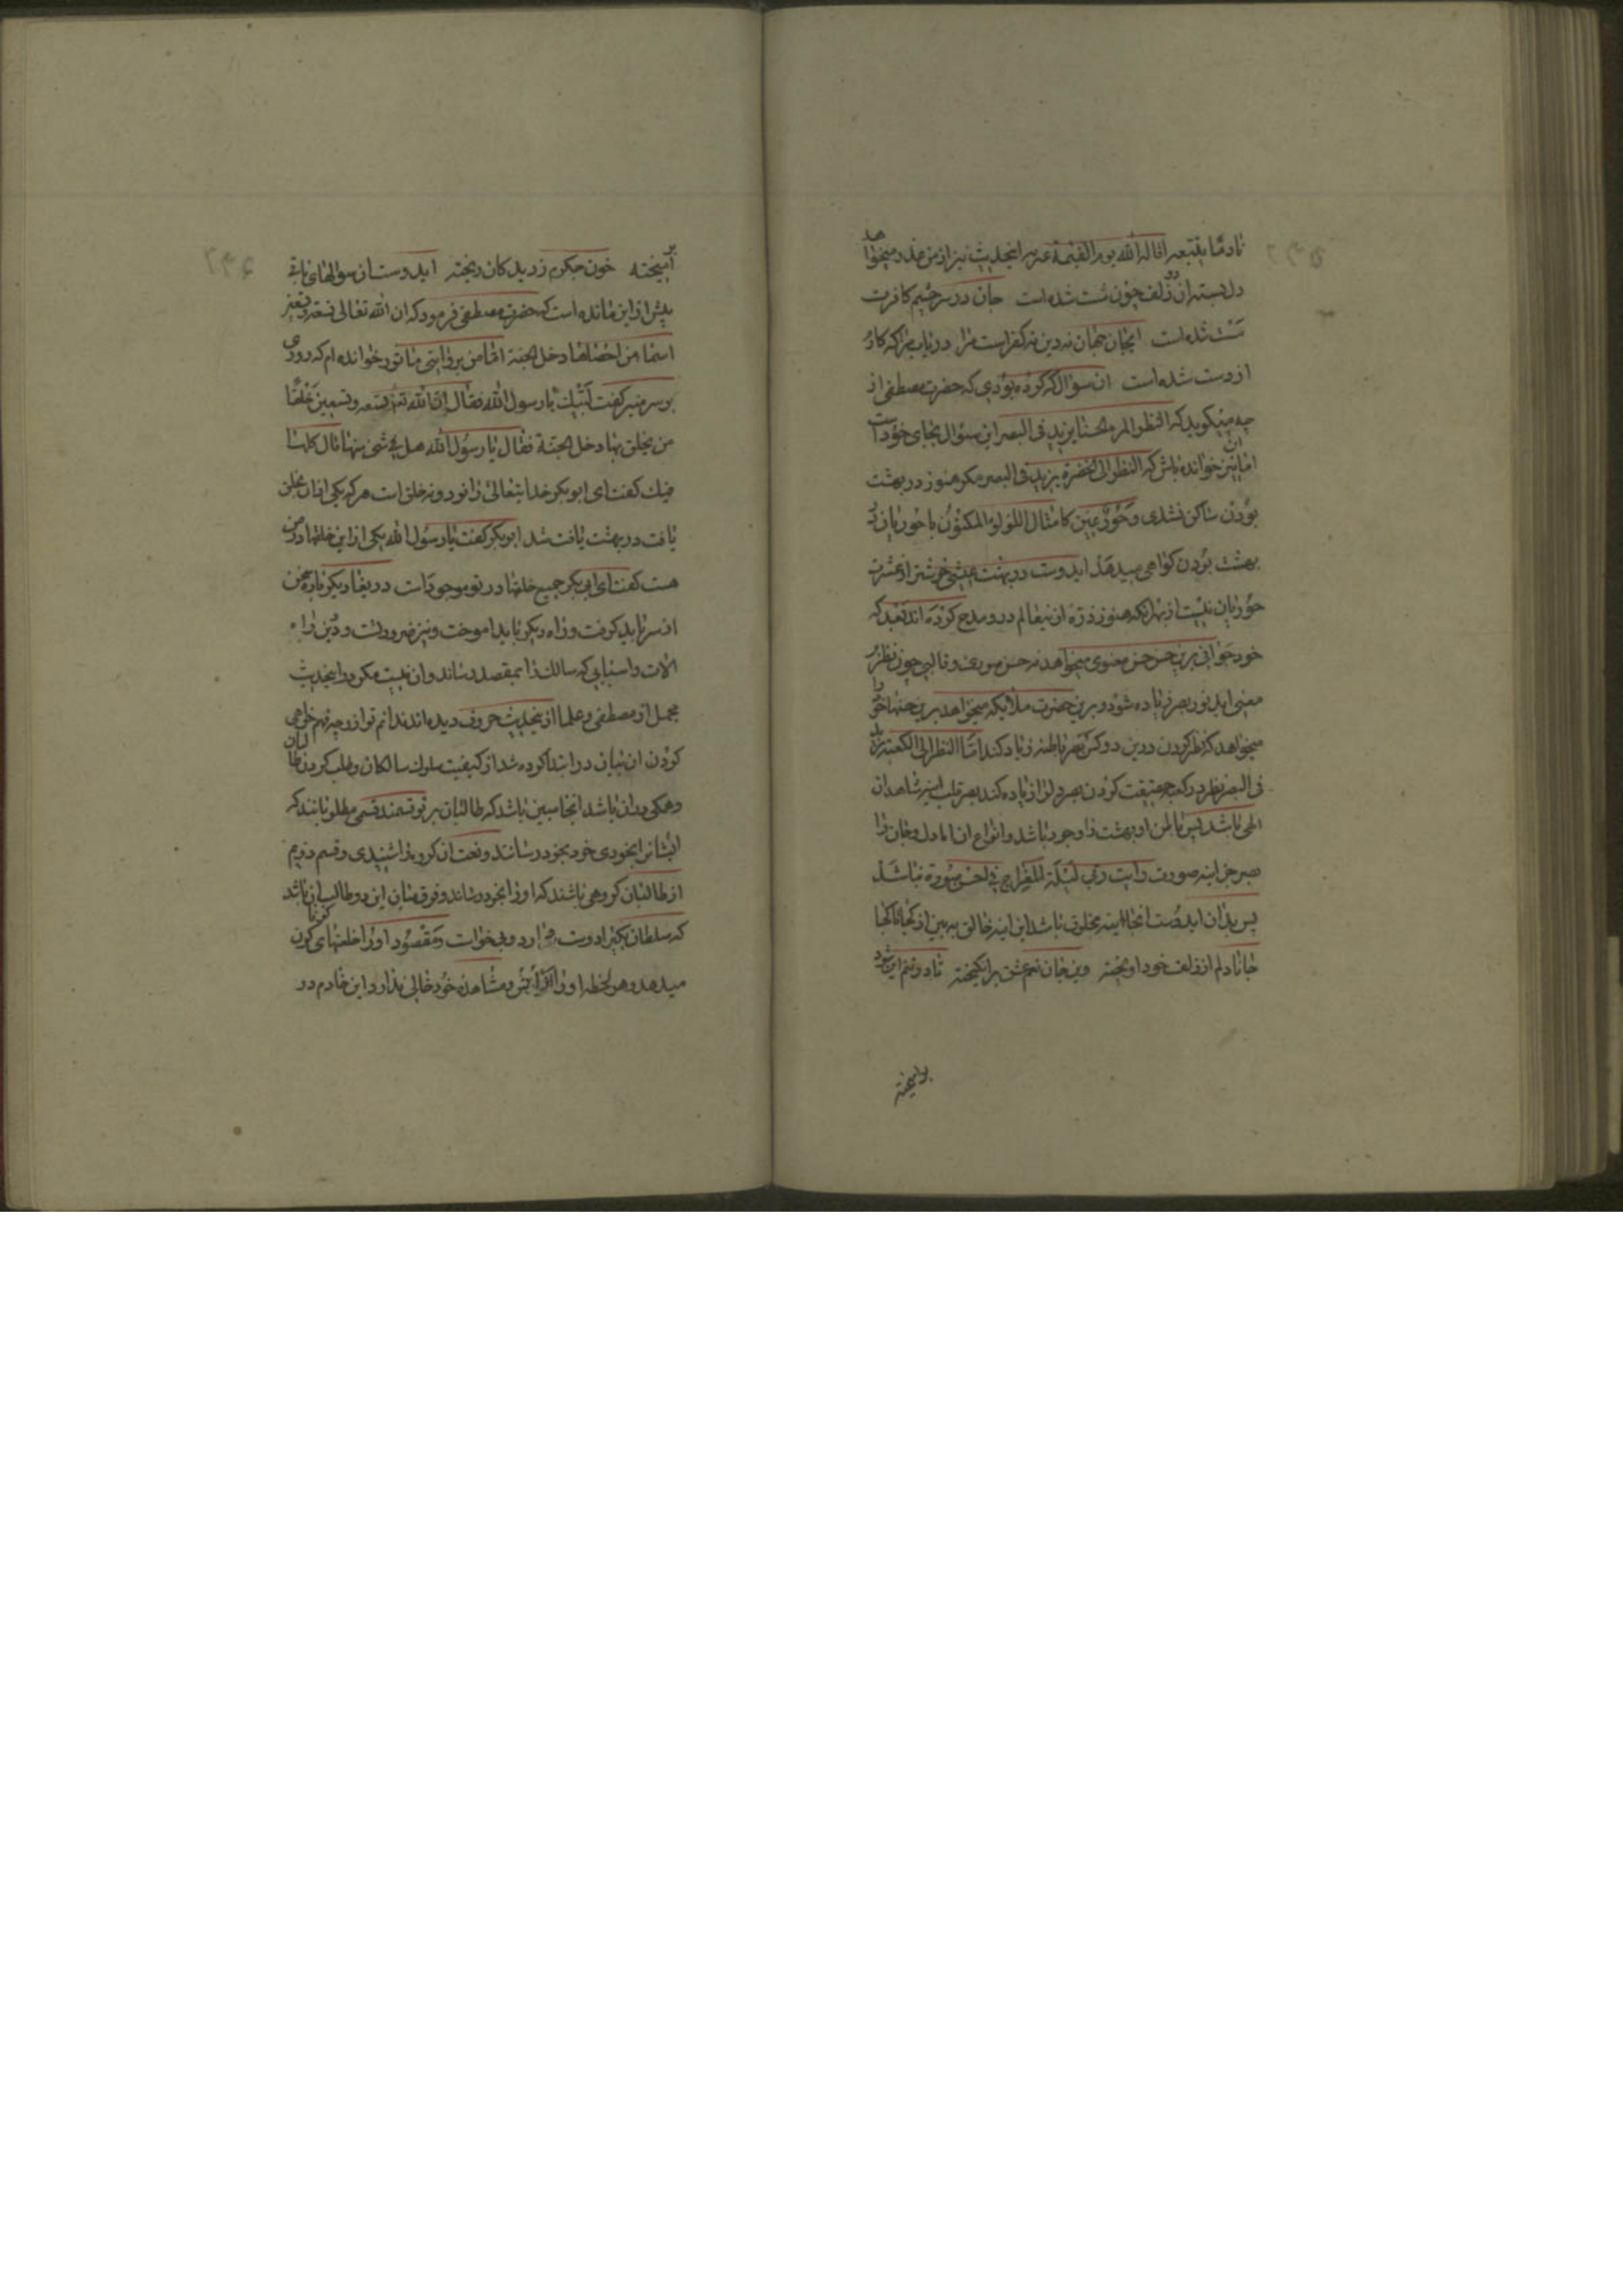 نادمًا بیتبعه اقاله الله یوم القیمة عذر اینحدیث نیز از من عذر میخواهد
دل بسته ان دو زلف چون شست شده است جان در سر چشم کافرت
مست شده است ایجان جهان نه دین نه کفر است مرا دریاب مرا که کار
از دست شده است ان سؤال که کرده بودی که حضرت مصطفی از
چه میگوید که النظر المرء الحسنا یزید فی البصر این سؤال بجای خود است
اما این نیز خوانده باش که النظر الی الخضرة یزید فی البصر مکر هنوز در بهشت
بودن ساکن نشدی وحور عین کامثال اللؤلؤ المکنون با حوریان در
بهشت بودن کواهی میدهد ایدوست در بهشت عیشی خوشتر از عشرت
حوریان نیست از بهر انکه هنوز ذره از نیعالم درو مدرج کرده اند تعبد که
خود جوانی برین حسن حسن معنوی میخواهد نه حسن صورت و قالبی چون نظر در
معنی اید نور بصر زیاده شود و برین حضرت ملایکه میخواهد برین حسنها خود را
میخواهد که نظر کردن درین دو کس بصر باطنه زیاد کند امّا النظر الی الکعبة یزید
فی البصر نظر در کعبه حقیقت کردن بصر دل را زیاده کند بصر قلب اینه شاهد ان
الهی باشد پس باطن او بهشت را وجود باشد و انواع ان اما دل و جان را
بصر جز اینه صورت رایت ربی لیلة المعراج فی احسن صورة نباشد
پس بدان ایدوست انجا اینه مخلوق باشد این اینه خالق به بین از کجا تا کجا
جانا دلم از زلف خود اویخته وین جان نعم عشق برانکیخته تا در تنم این شور
برامیخته
برامیخته خون جکرم ز دیدکان ریخته ایدوست از سؤالهای باقی
بیش از این مانده است که حضرت مصطفی فرمود که ان الله تعالی تسعة وتسعین
اسما من احصاها دخل الجنة اما من بروایتی ماثور خوانده ام که روزی
بر سر منبر کفت لبیک یا رسول الله فقال ان الله تعالی تسعه وتسعین خلقًا
من تخلق بها دخل الجنة فقال یا رسول الله هل فی شی منها قال کلها
فیک کفت ای ابوبکر خدایتعالی را نود و نه خلق است هرکه یکی از ان خلق
یافت در بهشت یافت شد ابوبکر کفت یا رسول الله یکی از این خلقها در من
هست کفت ای ابی بکر جمیع خلقها در تو موجود است دریغا دیکر باره سخن
از سر باید کرفت و راه دیکر باید اموخت و نیز ضرور است و دین راه
الات و اسبابی که سالک را بمقصد رساند و ان نیست مکر در اینحدیث
مجمل از مصطفی و علما از ینحدیث حروف دیده اند ندانم تو از وجه فهم خواهی
کردن ان بیان در ابتدا کرده شد از کیفیت سلوک سالکان و طلب کردن طالبان
و همکی در ان باشد انجا مبین باشد که طالبان بر دو قسمند قسمی مطلوبانند که
ایشانرا بخودی خود بخود رسانند و نعت ان کروه را شنیدی و قسم دویم
از طالبان کروهی باشند که او را بخود رساند و فرق میان این دو طالب ان باشد
که سلطان یکیرا دوست دارد و بی خواست و مقصود او را خلعتهای کونا کون
میدهد و هر لحظه او را از پیش و مشاهده خود خالی ندارد این خادم در